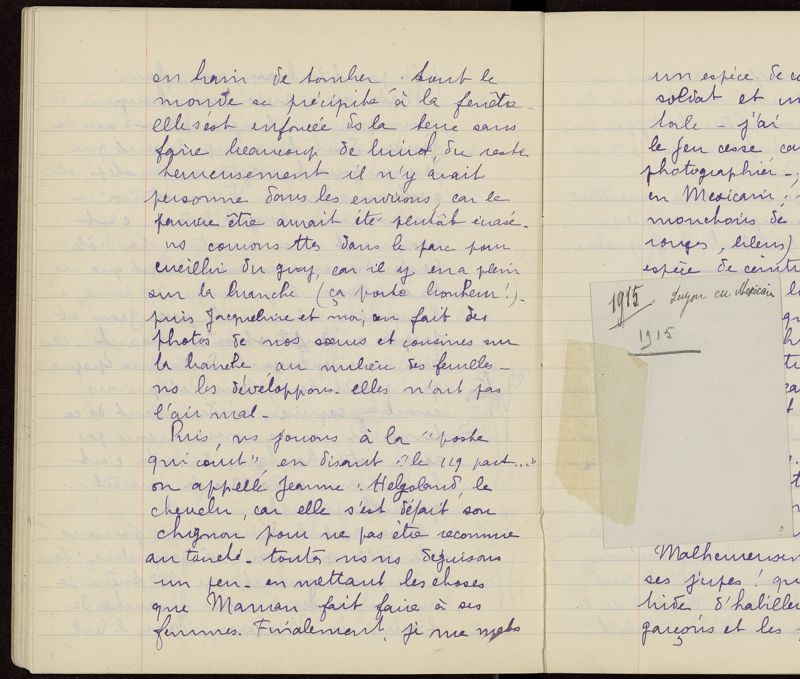 en train de tomber. tout le
monde se précipite à la fenêtre.
elle s'est enfoncée ds la terre sans
faire beaucoup de bruit, du reste
heureusement il n'y avait
personne dans les environs, car le
pauvre être aurait été plutôt écrasé.
ns courons ttes dans le parc pour
cueillir du guy, car il y en a plein
sur la branche (ça porte bonheur!).
puis Jacqueline et moi, on fait des
photos de nos sœurs et cousines sur
la branche, au milieu des feuilles -
ns les développons. elles n'ont pas
l'air mal -
Puis, ns jouons à la "poste
qui court" en disant : "le 119 part..."
on appelle Jeanne : Helgoland, le
chevelu, car elle s'est défait son
chignon pour ne pas être reconnue
au toucher - toutes ns ns déguisons
un peu - en mettant les choses
que Maman fait faire à ses
femmes. Finalement, je me mets
un espèce de
soldat et un
tale - j'ai
le jeu cesse
photographier -
en Mexicain,
manchons de
rouges, bleus)
espèce de
1915 en Mexicain
1915
Malheureusem
ses jupes! qu
d'habiller
garçons et les